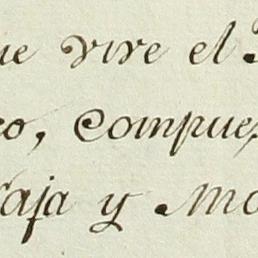 ue vive el
co, compues
aja y Mo